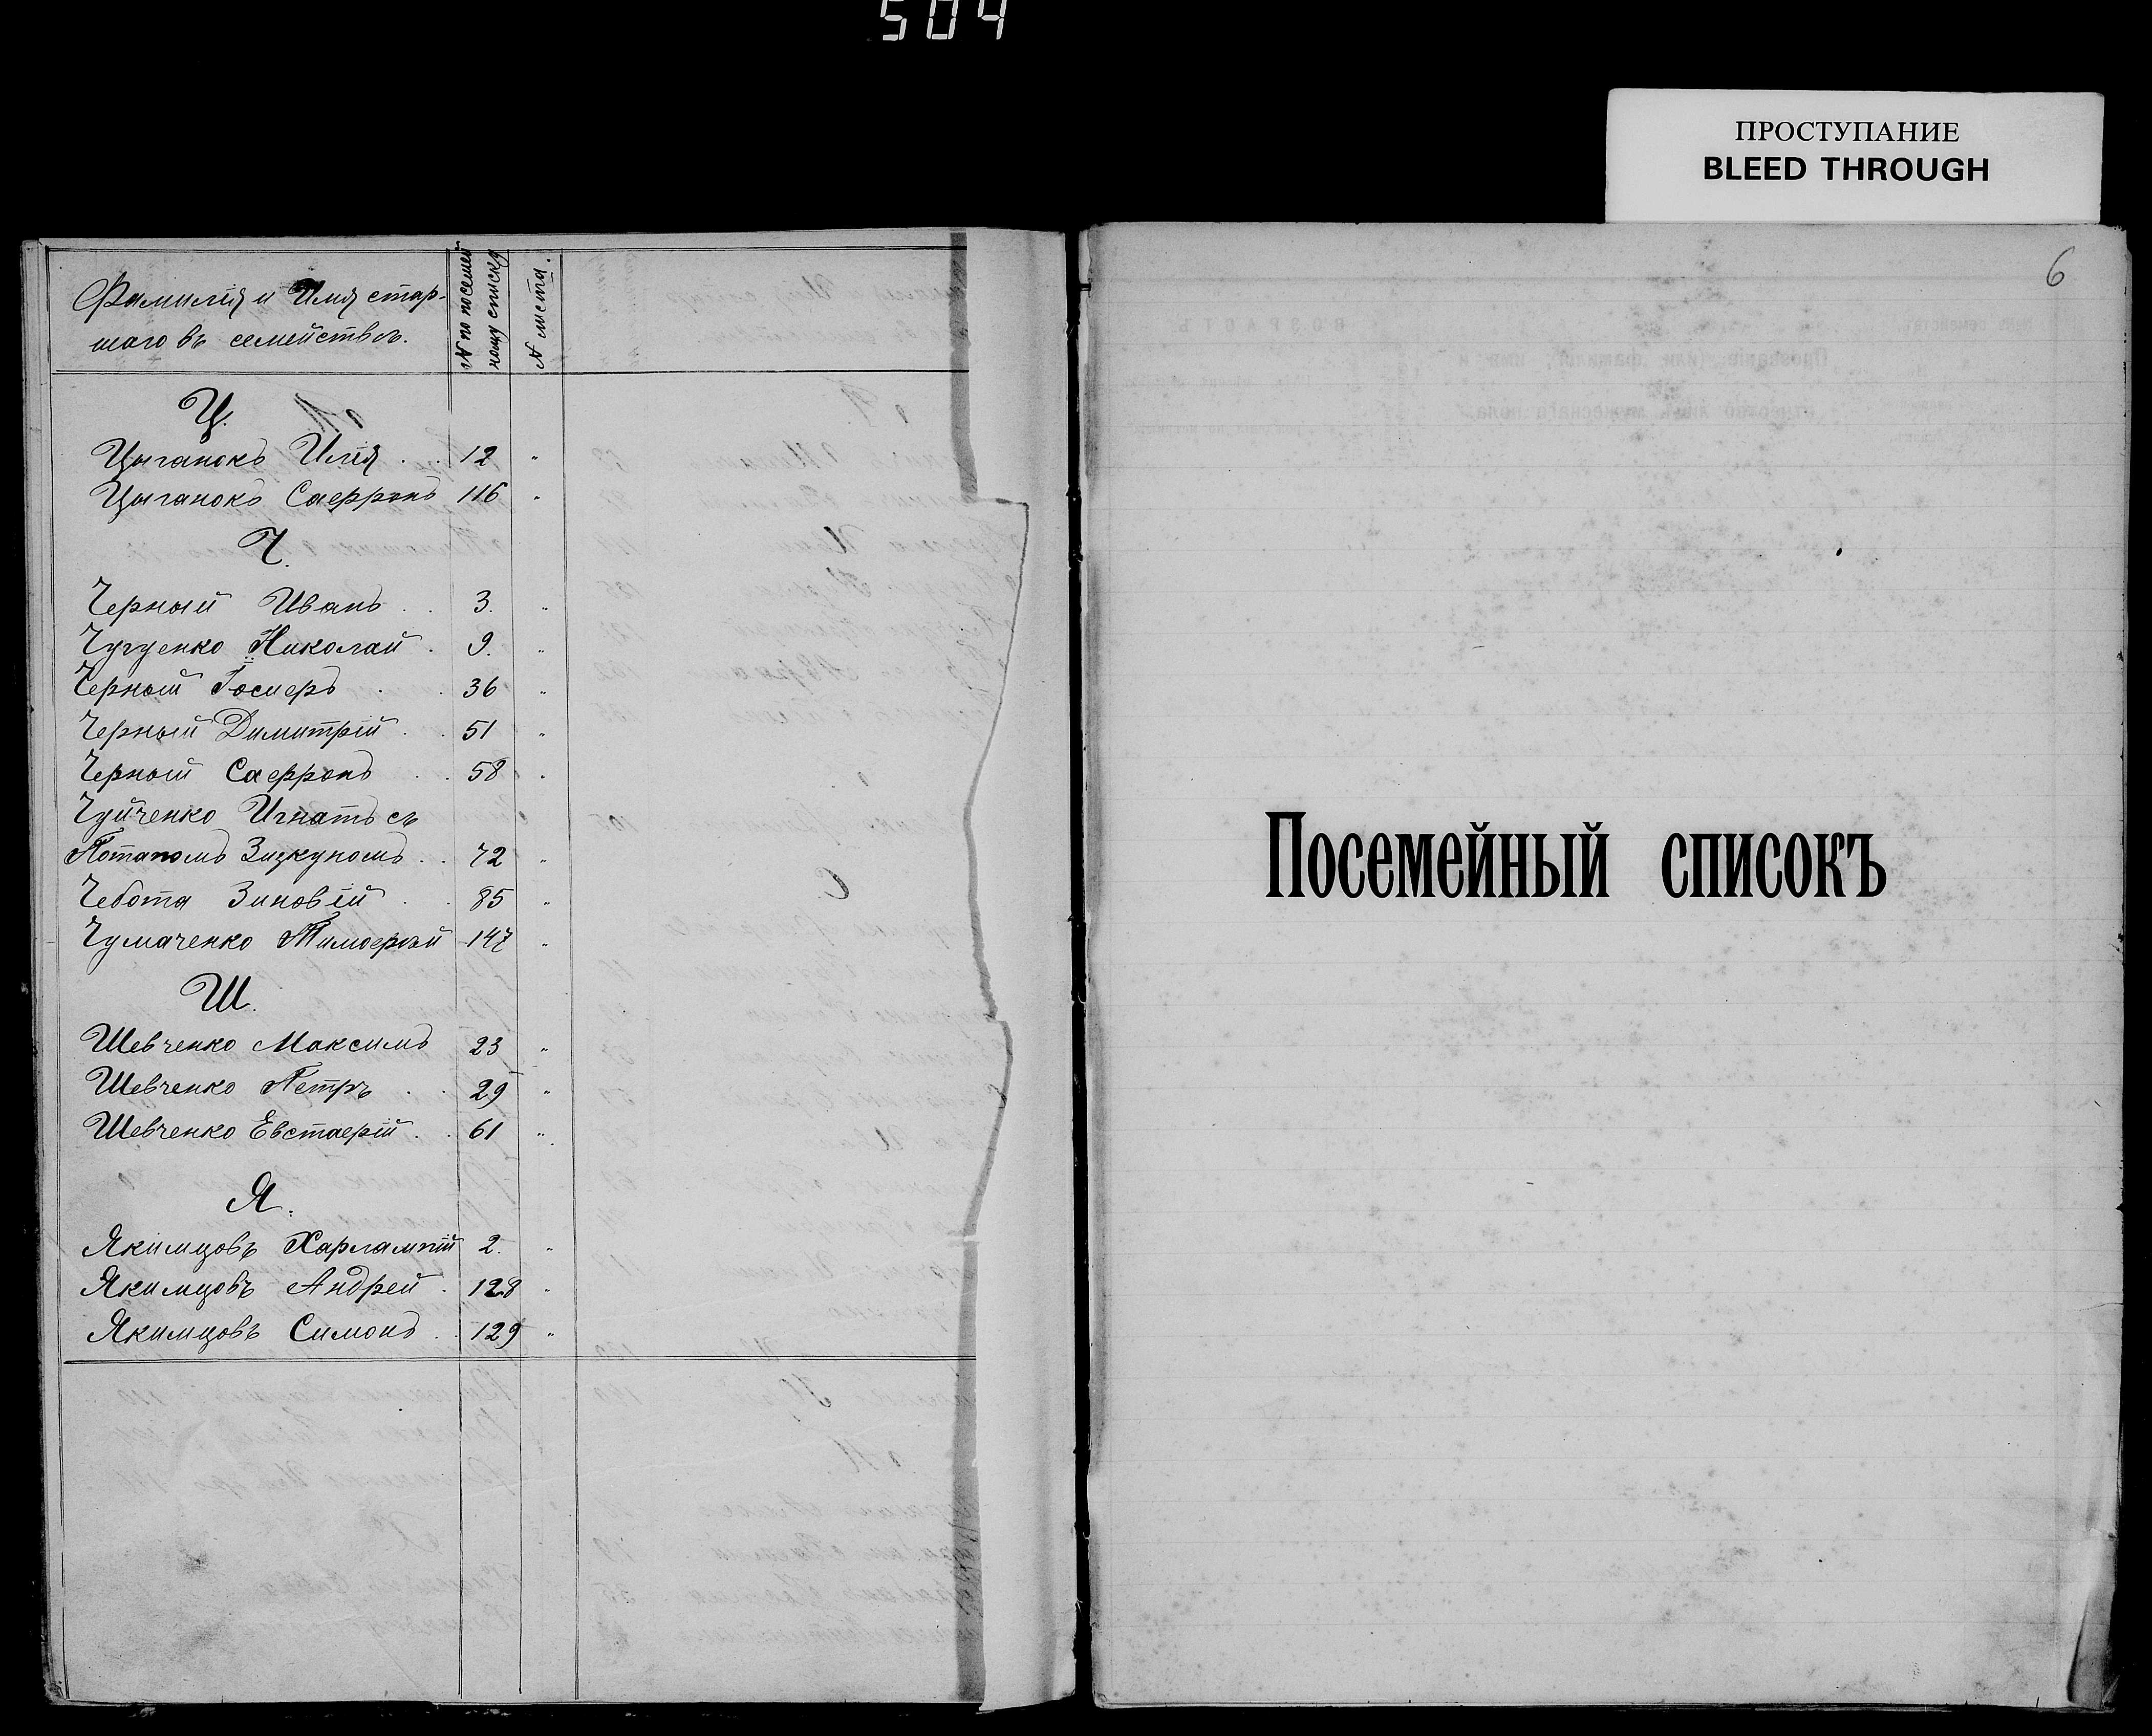 504
ПРОСТУПАНИЕ
BLEED THROUGH
Фамилія и Имя стар-
шаго въ семействѣ.
№ по посемей
ному списку
№ листа.
Ц.
Цыганокъ Илія . . 12 "
Цыганокъ Сафронъ 116 "
Ч.
Черный Иванъ . . 3. "
Чугуенко Николай . 9. "
Черный Іосифъ . . 36 "
Черный Димитрій . . 51 "
Черный Сафронъ . . 58 "
Чуйченко Игнатъ съ
Потапомъ . . 72 "
Чебота Зиновій . . 85 "
Чумаченко Тимофей 147 "
Ш.
Шевченко Максимъ 23 "
Шевченко Петръ . . 29 "
Шевченко Евстафій . . 61 "
Я.
Якимцовъ Харлампій 2. "
Якимцовъ Андрей . 128 "
Якимцовъ Симонъ . . 129 "
6
Посемейный списокъ